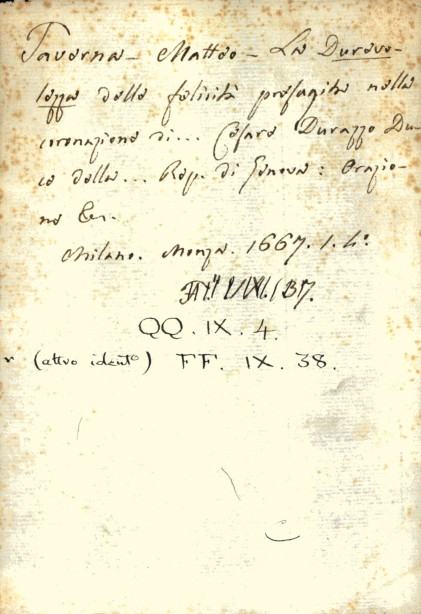 Taverna - Matteo - La Durevo-
lezza della felicità presagita nella
coronazione di... Cesare Durazzo Du-
ce della... Rep. di Genova: Orazio-
ne &c.
Milano. Monza. 1667. 1. 4º.
QQ. IX. 4.
(altro ident.º) FF. IX. 38.